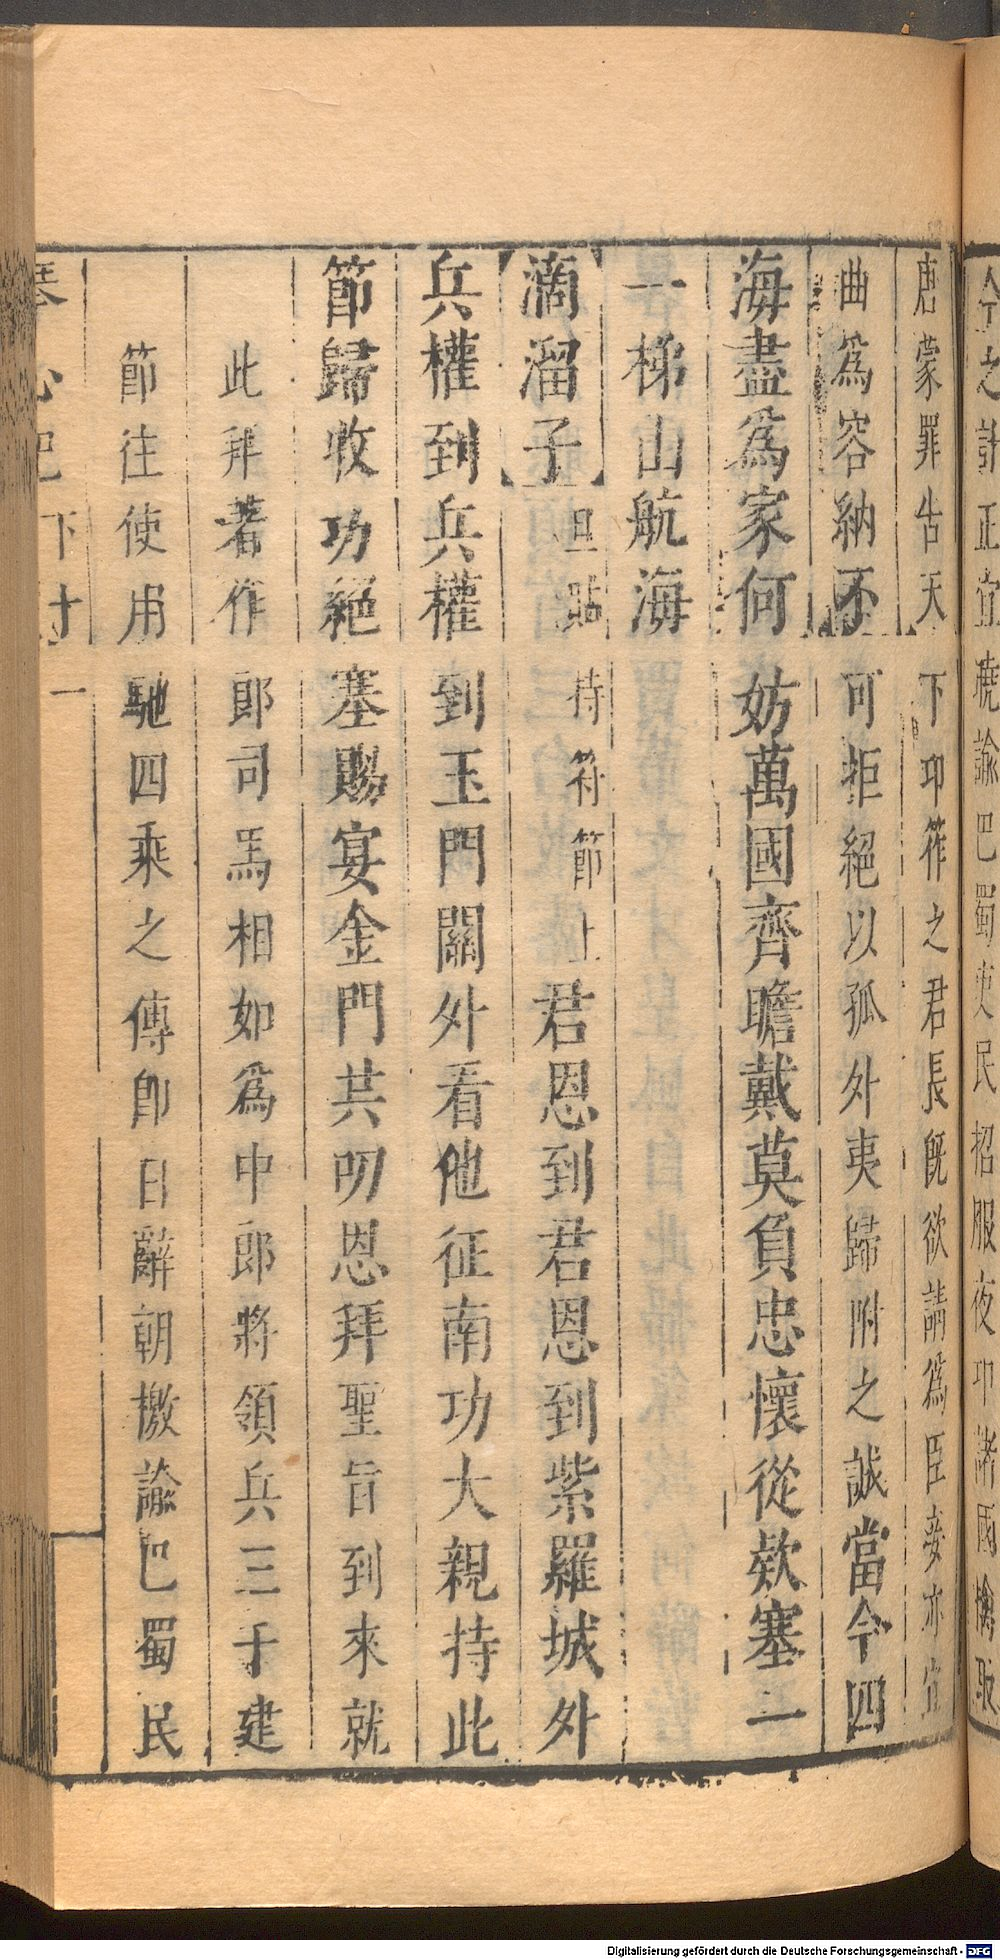 令之計正宜曉諭巴蜀吏民招服夜卭諸國擒馭
唐蒙罪告天下卭筰之君長旣欲請爲臣妾亦宜
曲爲容納不可拒絕以孤外夷歸附之誠當今四
海盡爲家何妨萬國齊瞻戴莫負忠懷從欵塞一
一梯山航海
【滴溜子】旦貼持符節上君恩到君恩到紫羅城外
兵權到兵權到玉門關外看他征南功大親持此
節歸收功絕塞賜宴金門共叨恩拜聖旨到來就
此拜著作郎司馬相如爲中郎將領兵三千建
節往使用馳四乘之傳卽日辭朝檄諭巴蜀民
琴心記下 十一
Digitalisierung gefördert durch die Deutsche Forschungsgemeinschaft - DFG